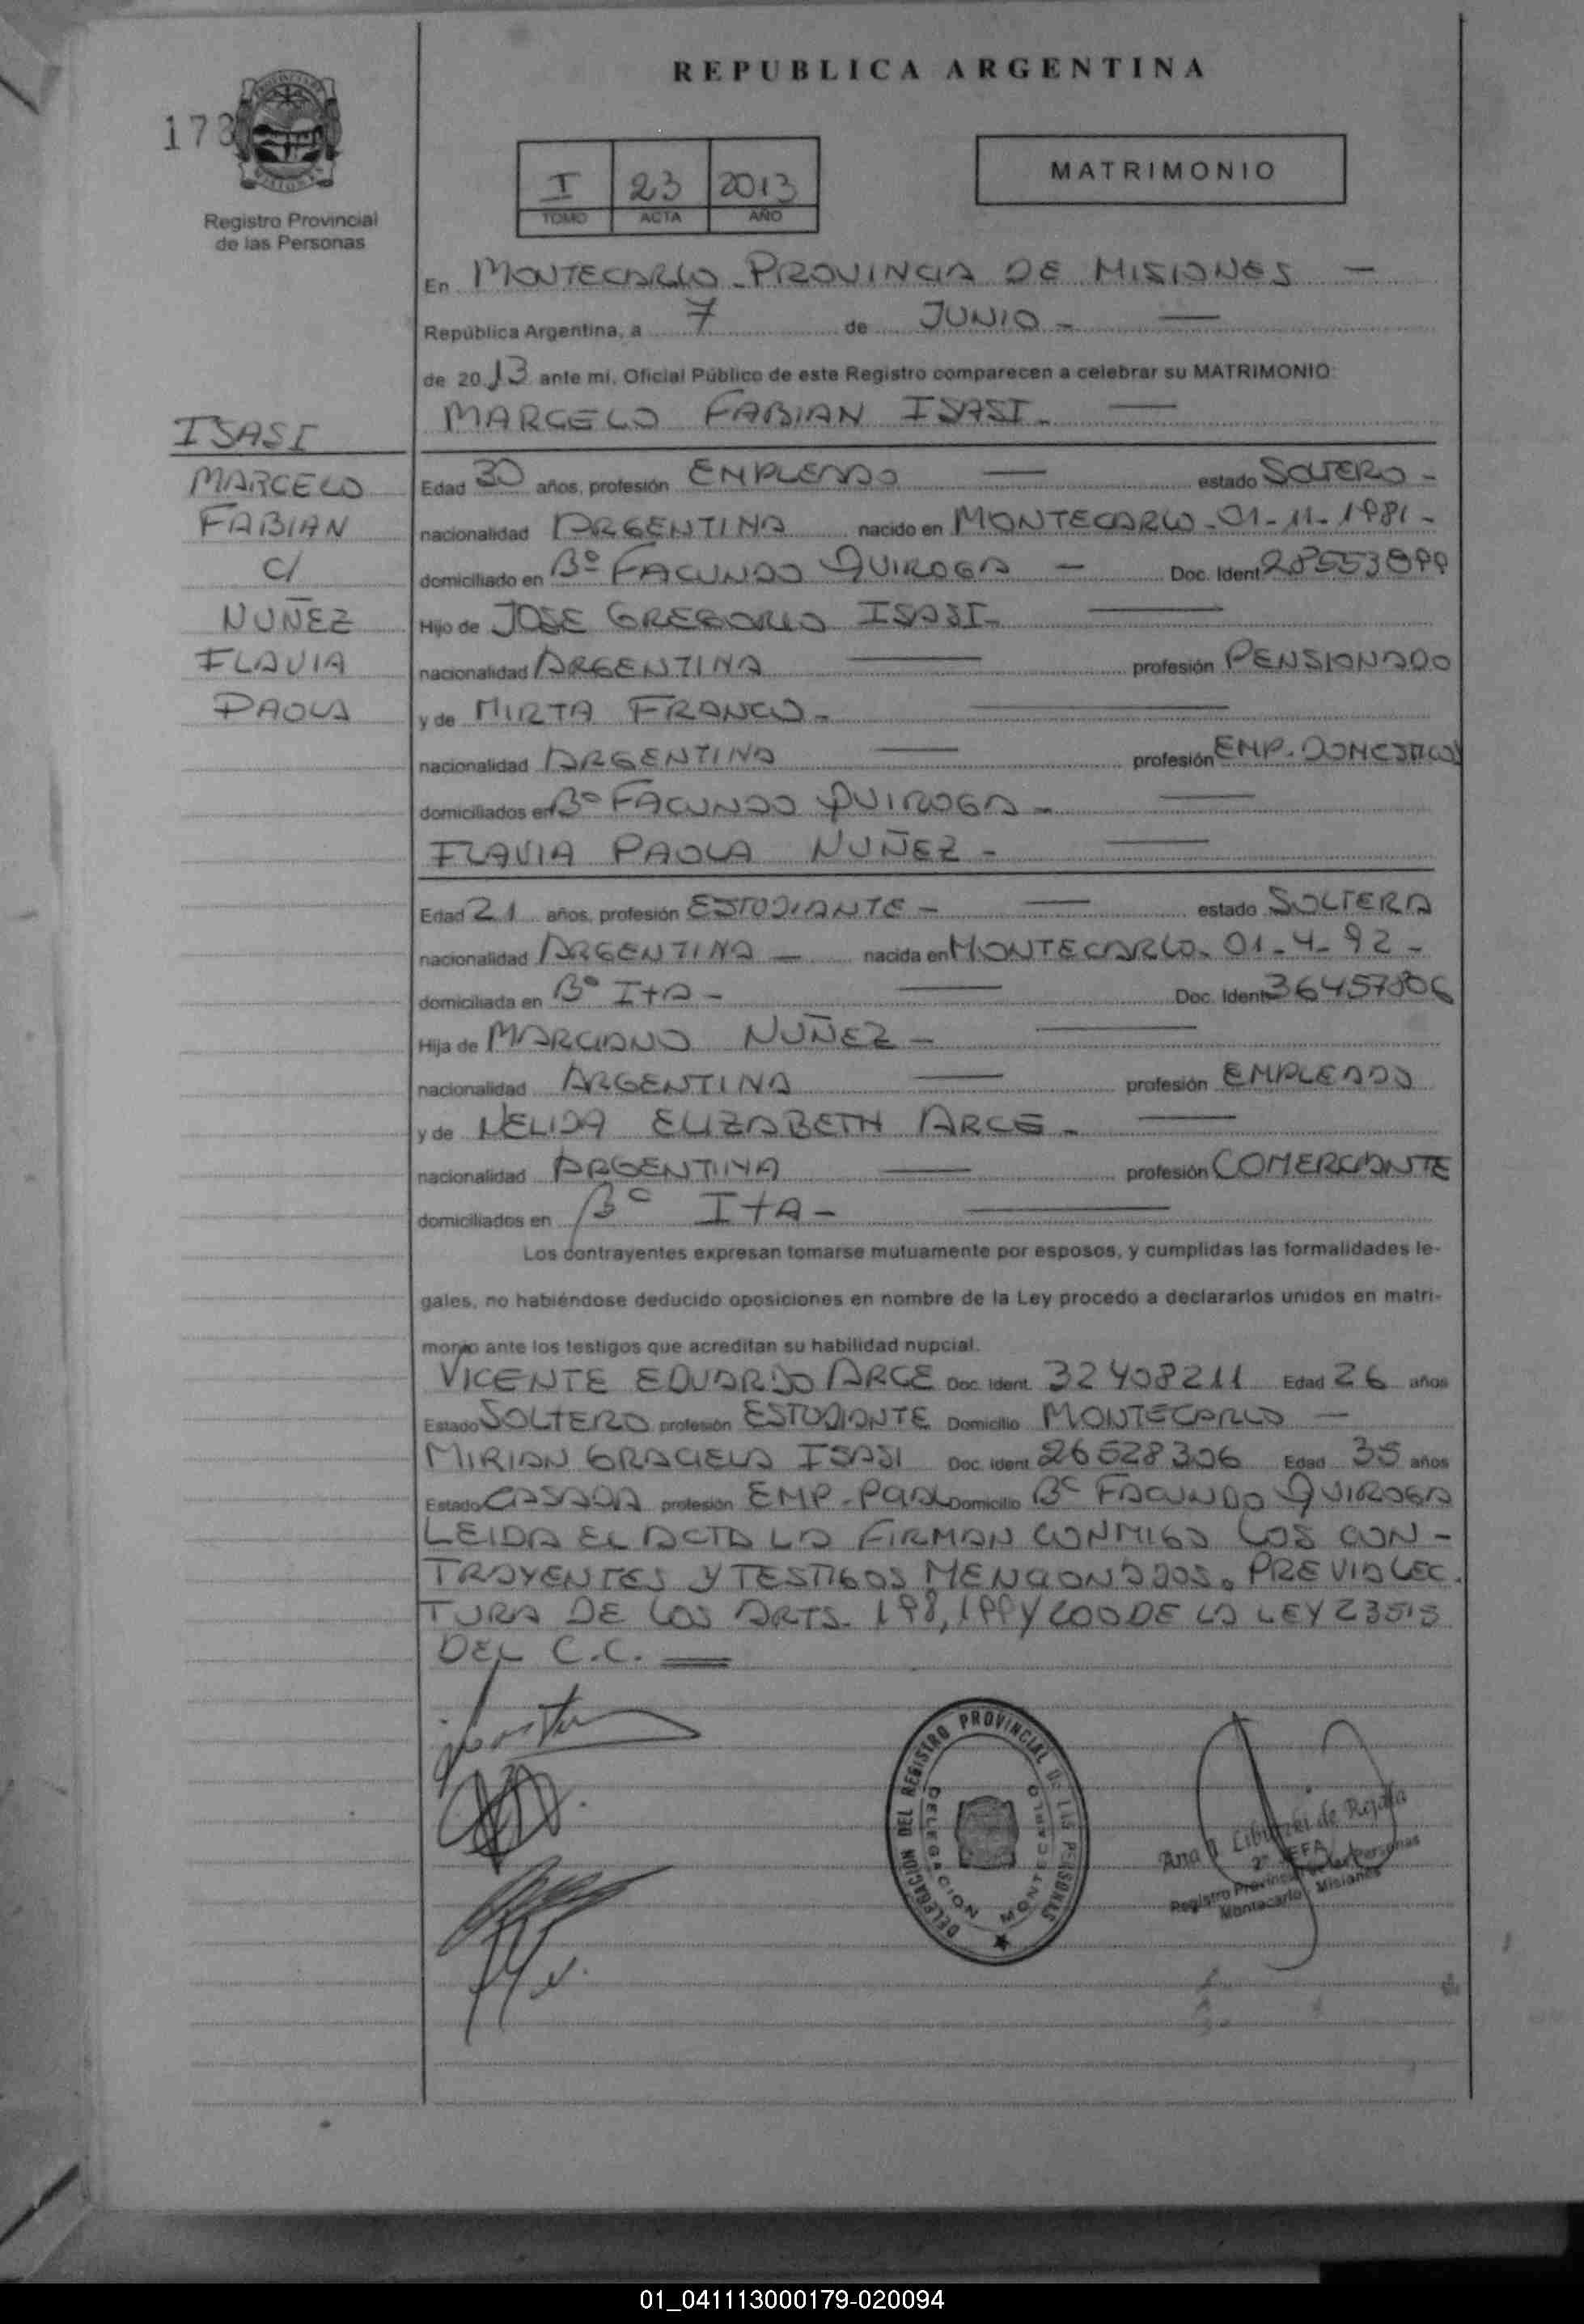 REPUBLICA ARGENTINA
MATRIMONIO
I 23 2013
TOMO ACTA AÑO
Registro Provincial
de las Personas
En MONTECARLO - PROVINCIA DE MISIONES —
República Argentina, a 7 de JUNIO - —
de 2013 ante mi, Oficial Público de este Registro comparecen a celebrar su MATRIMONIO:
MARCELO FABIAN ISASI - —
ISASI
MARCELO
FABIAN
C/
NUÑEZ
FLAVIA
PAOLA
Edad 30 años, profesión EMPLEADO — estado SOLTERO -
nacionalidad ARGENTINA nacido en MONTECARLO - 01-11-1981 -
domiciliado en Bº FACUNDO QUIROGA — Doc. Ident
Hijo de JOSE GREGORIO ISASI - —
nacionalidad ARGENTINA — profesión PENSIONADO
y de MIRTA FRANCO - —
nacionalidad ARGENTINA — profesión EMP. DOMESTICA
domiciliados en Bº FACUNDO QUIROGA - —
FLAVIA PAOLA NUÑEZ - —
Edad 21 años, profesión ESTUDIANTE - — estado SOLTERA
nacionalidad ARGENTINA — nacida en MONTECARLO - 01-4-92 -
domiciliada en Bº ITA - — Doc. Ident 36457806
Hija de MARCIANO NUÑEZ - —
nacionalidad ARGENTINA — profesión EMPLEADO
y de NELIDA ELIZABETH ARCE - —
nacionalidad ARGENTINA — profesión COMERCIANTE
domiciliados en Bº ITA - —
Los contrayentes expresan tomarse mutuamente por esposos, y cumplidas las formalidades le-
gales, no habiéndose deducido oposiciones en nombre de la Ley procedo a declararlos unidos en matri-
monio ante los testigos que acreditan su habilidad nupcial.
VICENTE EDUARDO ARCE Doc. Ident. 32408211 Edad 26 años
Estado SOLTERO profesión ESTUDIANTE Domicilio MONTECARLO —
MIRIAN GRACIELA ISASI Doc. Ident. 26528306 Edad 35 años
Estado CASADA profesión EMP. Domicilio Bº FACUNDO QUIROGA
LEIDA EL ACTA LA FIRMAN CONMIGO LOS CON-
TRAYENTES Y TESTIGOS MENCIONADOS. PREVIA LEC-
TURA DE LOS ARTS. 198, 199 Y 200 DE LA LEY 23515
DEL C.C.
DELEGACION DEL REGISTRO PROVINCIAL DE LAS PERSONAS
DELEGACION MONTECARLO
Ana de Rojala
2º JEFA
Registro Provincial de las Personas
Montecarlo - Misiones
01_041113000179-020094